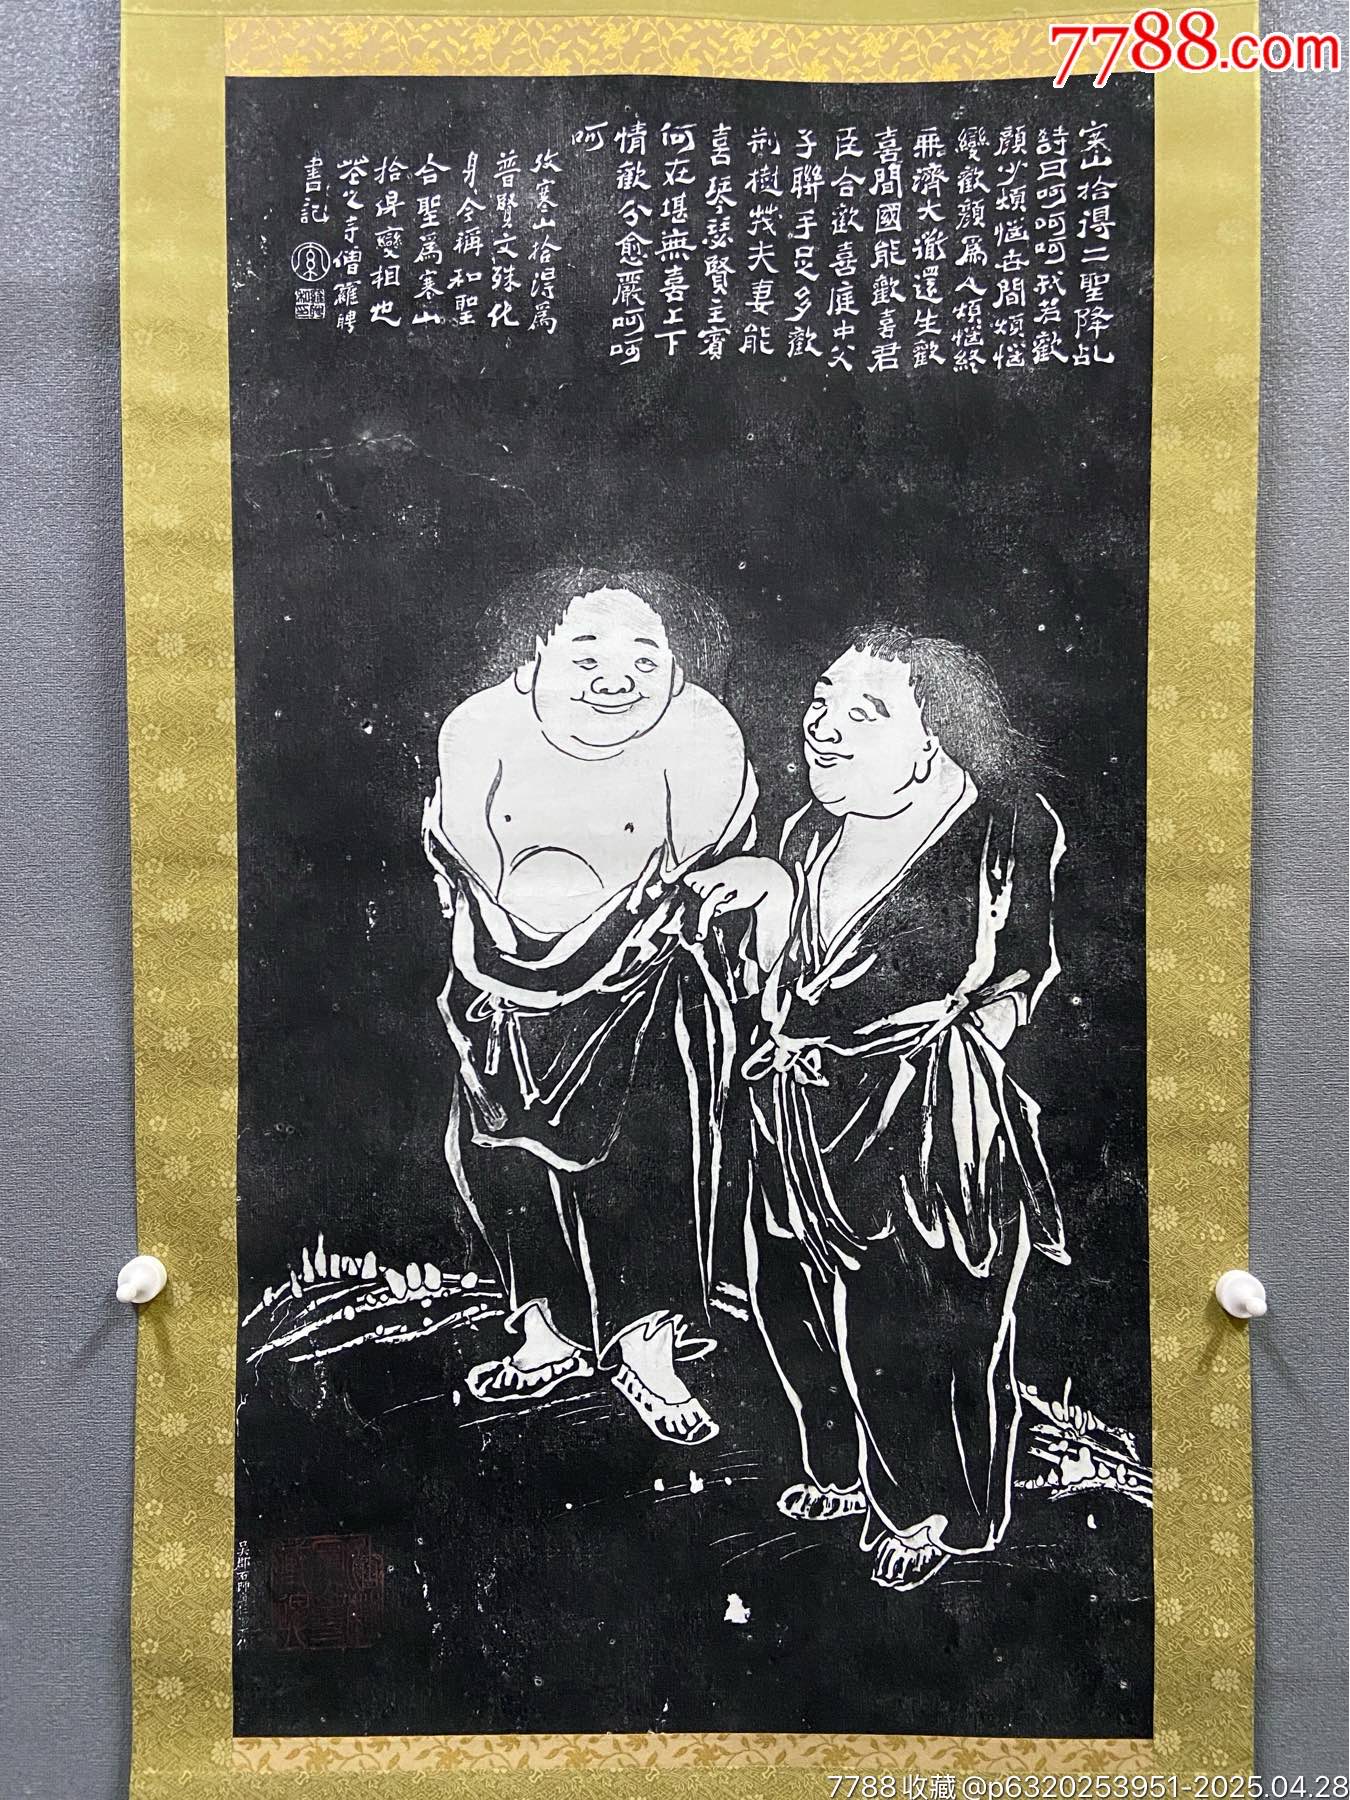 7788.com
寒山拾得二聖降乩
詩曰呵呵呵我若歡
顏少煩惱世間煩惱
變歡顏為人煩惱終
無濟大道還生歡
喜間國能歡喜君
臣合歡喜庭中父
子聯手足多歡
荊樹茂夫妻能
喜琴瑟賢主賓
何在堪無喜上下
情歡分愈嚴呵呵
呵
攷寒山拾得為
普賢文殊化
身今稱和聖
合聖為寒山
拾得變相也
花之寺僧羅聘
書記
吳郡石師
7788收藏@p6320253951-2025.04.28